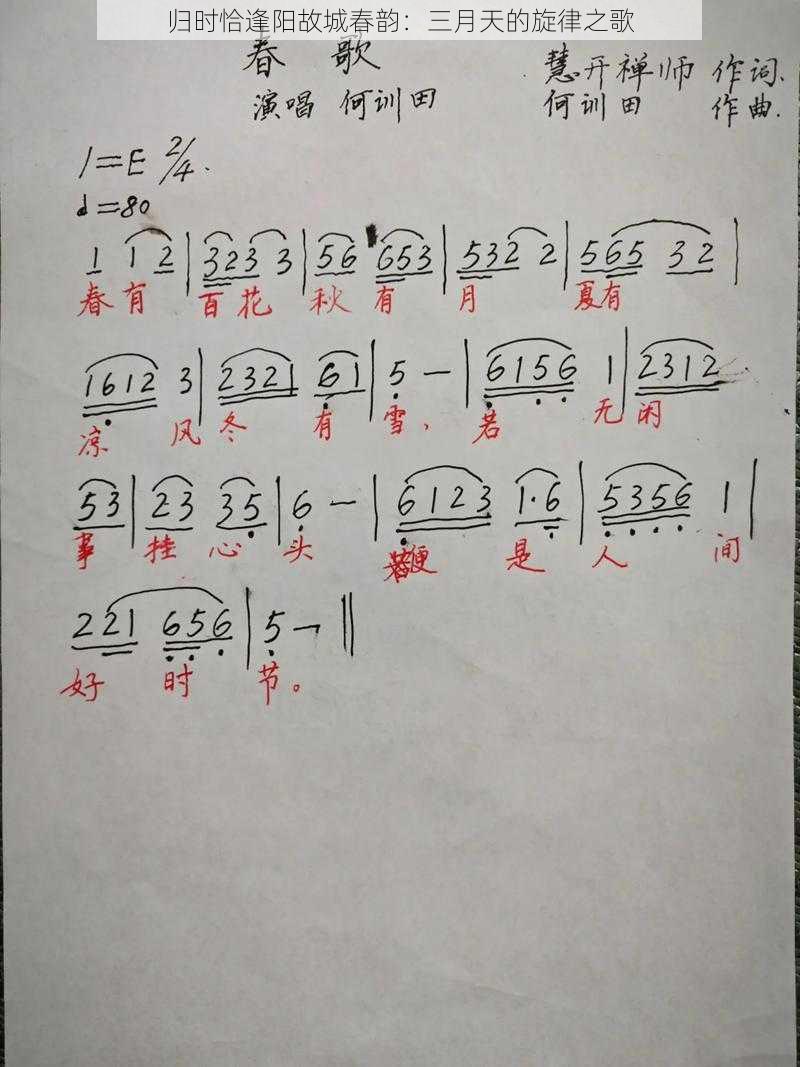 归时恰逢阳故城春韵：三月天的旋律之歌
春 歌 慧开禅师 作词.
演唱 何训田 何训田 作曲.
1=E 2/4.
d=80
1 1 2 | 3 2 3 3 | 5 6 6 5 3 | 5 3 2 2 | 5 6 5 3 2 |
春 有 百 花 秋 有 月 夏 有
1 6 1 2 3 | 2 3 2 1 6 1 | 5 — | 6 1 5 6 1 | 2 3 1 2
凉 风 冬 有 雪、 若 无 闲
5 3 | 2 3 3 5 | 6 — | 6 1 2 3 1·6 | 5 3 5 6 1 |
事 挂 心 头 便 是 人 间
2 2 1 6 5 6 | 5 — ‖
好 时 节。